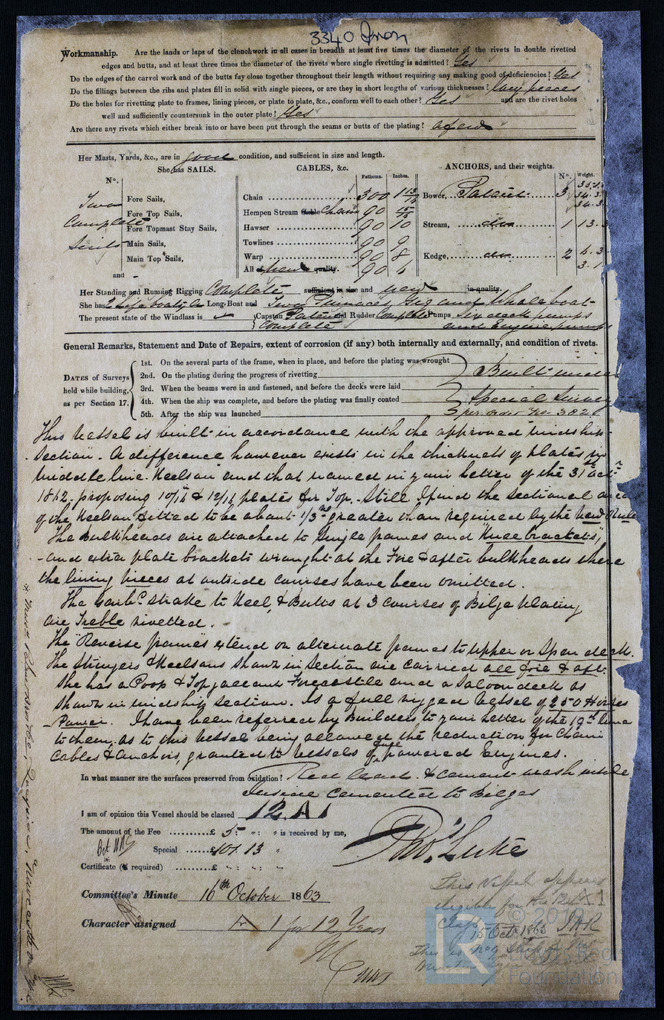 3340 Iron
Workmanship. Are the lands or laps of the clenchwork in all cases in breadth at least five times the diameter of the rivets in double rivetted
edges and butts, and at least three times the diameter of the rivets where single rivetting is admitted? Yes
Do the edges of the carvel work and of the butts fay close together throughout their length without requiring any making good of deficiencies? Yes
Do the fillings between the ribs and plates fill in solid with single pieces, or are they in short lengths of various thicknesses? pieces
Do the holes for rivetting plate to frames, lining pieces, or plate to plate, &c., conform well to each other? Yes and are the rivet holes
well and sufficiently countersunk in the outer plate? Yes
Are there any rivets which either break into or have been put through the seams or butts of the plating? a few
Her Masts, Yards, &c., are in good condition, and sufficient in size and length.
She has SAILS. CABLES, &c. ANCHORS, and their weights.
N°. Fathoms. Inches. N°. Weight.
Two Complete Suits
Fore Sails,
Fore Top Sails,
Fore Topmast Stay Sails,
Main Sails,
Main Top Sails,
and
Chain 300 1 13/16
Hempen Stream Chain 90 15/16
Hawser 90 10
Towlines 90 9
Warp 90 8
All quality. 90 6
Bower, Patent 3
Stream, do 1 13.
Kedge, do 2 6.3
3.1
Her Standing and Running Rigging Complete sufficient in size and new in quality.
She has 2 Lifeboats, a Long-Boat and Two Pinnaces, Gig and Whaleboat
The present state of the Windlass is Capstan Patent and Rudder Complete Pumps Six deck pumps
Complete and Engine pumps
General Remarks, Statement and Date of Repairs, extent of corrosion (if any) both internally and externally, and condition of rivets.
DATES of Surveys held while building, as per Section 17.
1st. On the several parts of the frame, when in place, and before the plating was wrought
2nd. On the plating during the progress of rivetting
3rd. When the beams were in and fastened, and before the decks were laid
4th. When the ship was complete, and before the plating was finally coated
5th. After the ship was launched
Built under
Special Survey
per order No. 302
This Vessel is built in accordance with the approved midship
Section. A difference however exists in the thickness of plates for
middle line Keelson and that named in your letter of the 31st Octr
1862, proposing 10/16 & 12/16 plates for Top. Still I find the sectional area
of the Keelson fitted to be about 1/3rd greater than required by the New Rule
The Bulkheads are attached to single frames and Knee brackets,
and extra plate brackets wrought at the Fore & after bulkheads where
the lining pieces at outside courses have been omitted.
The Garbd. strake to Keel, & Butts at 3 courses of Bilge plating
are Treble rivetted.
The Reverse frames extend on alternate frames to Upper or Spar deck.
The Stringers & Keelsons shown in Section are carried all fore & aft.
She has a Poop & Topgallant Forecastle and a Saloon deck as
shown in midship Sections. Is a full rigged Vessel of 250 Horses
Power. I have been referred by Builders to your letter of the 19th
to them, as to this Vessel being allowed the reduction for Chain
Cables & Anchors, granted to Vessels of large powered Engines.
In what manner are the surfaces preserved from oxidation? Red Lead & cement wash inside
Inside Cemented to Bilges
I am of opinion this Vessel should be classed 12 A 1
The amount of the Fee £5 : : is received by me,
Special £107 13
Certificate (if required) £ : :
Thos. Luke
Committee's Minute 16th October 1863
Character assigned A 1 for 12 Years
This Vessel appears
eligible for the 12 A 1
Class
15 Octr 1863
LR
© 20
Foundation